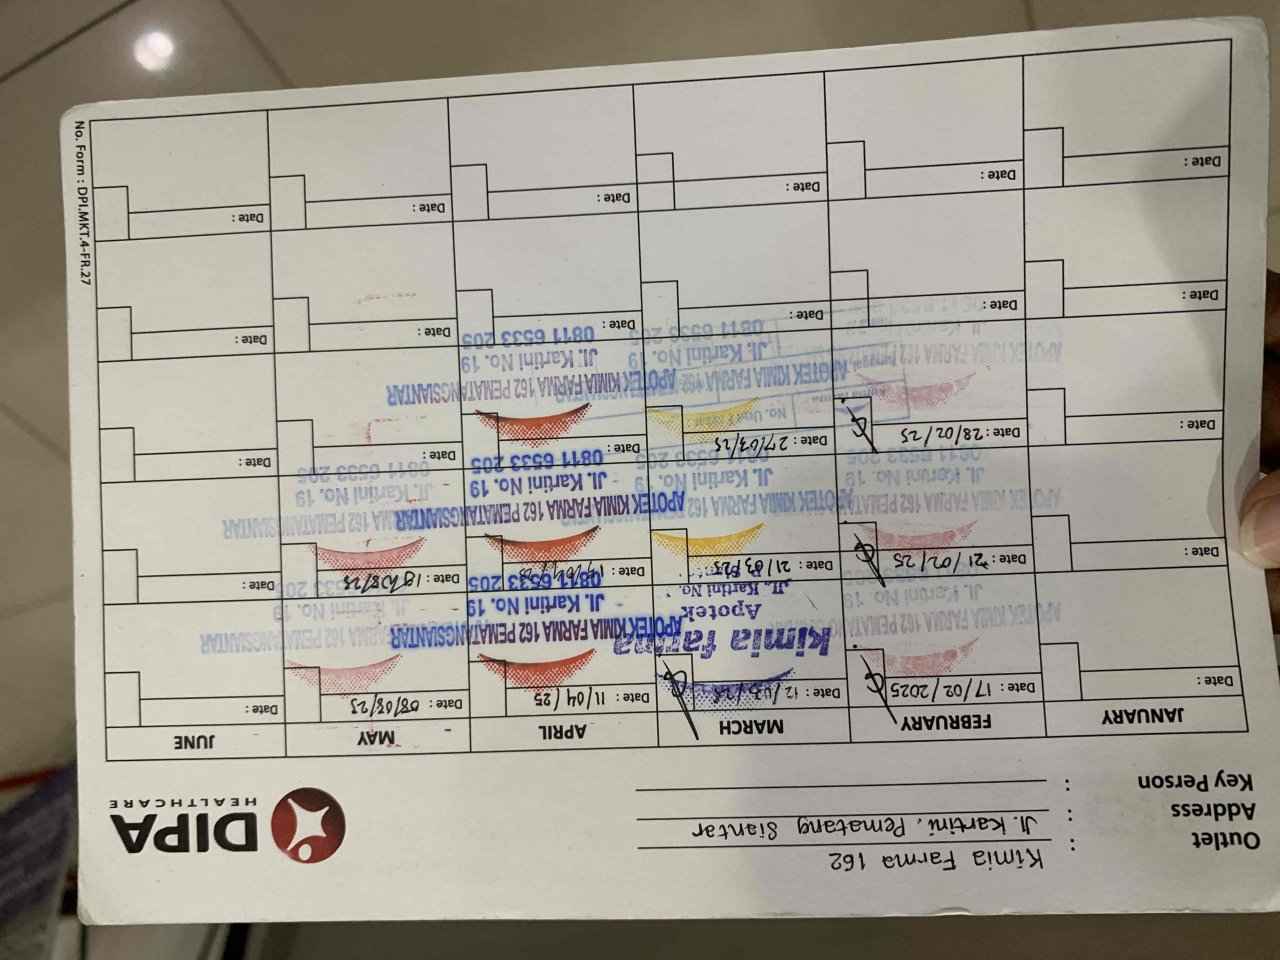 Outlet : Kimia Farma 162
Address : Jl. Kartini, Pematang Siantar
Key Person :
DIPA
HEALTHCARE
JANUARY FEBRUARY MARCH APRIL MAY JUNE
Date : Date : 17/02/2025 Date : 12/03/25 Date : 11/04/25 Date : Date :
kimia farma
Apotek
Jl. Kartini No.
APOTEK KIMIA FARMA 162 PEMATANGSIANTAR
Jl. Kartini No. 19
0811 6533 205
Date : Date : 21/02/25 Date : 21/03/25 Date : Date : Date :
APOTEK KIMIA FARMA 162 PEMATANGSIANTAR
Jl. Kartini No. 19
0811 6533 205
Date : Date : 28/02/25 Date : 27/03/25 Date : Date : Date :
APOTEK KIMIA FARMA 162 PEMATANGSIANTAR
Jl. Kartini No. 19
0811 6533 205
Date : Date : Date : Date : Date : Date :
Date : Date : Date : Date : Date : Date :
No. Form : DPI.MKT.4-FR.27